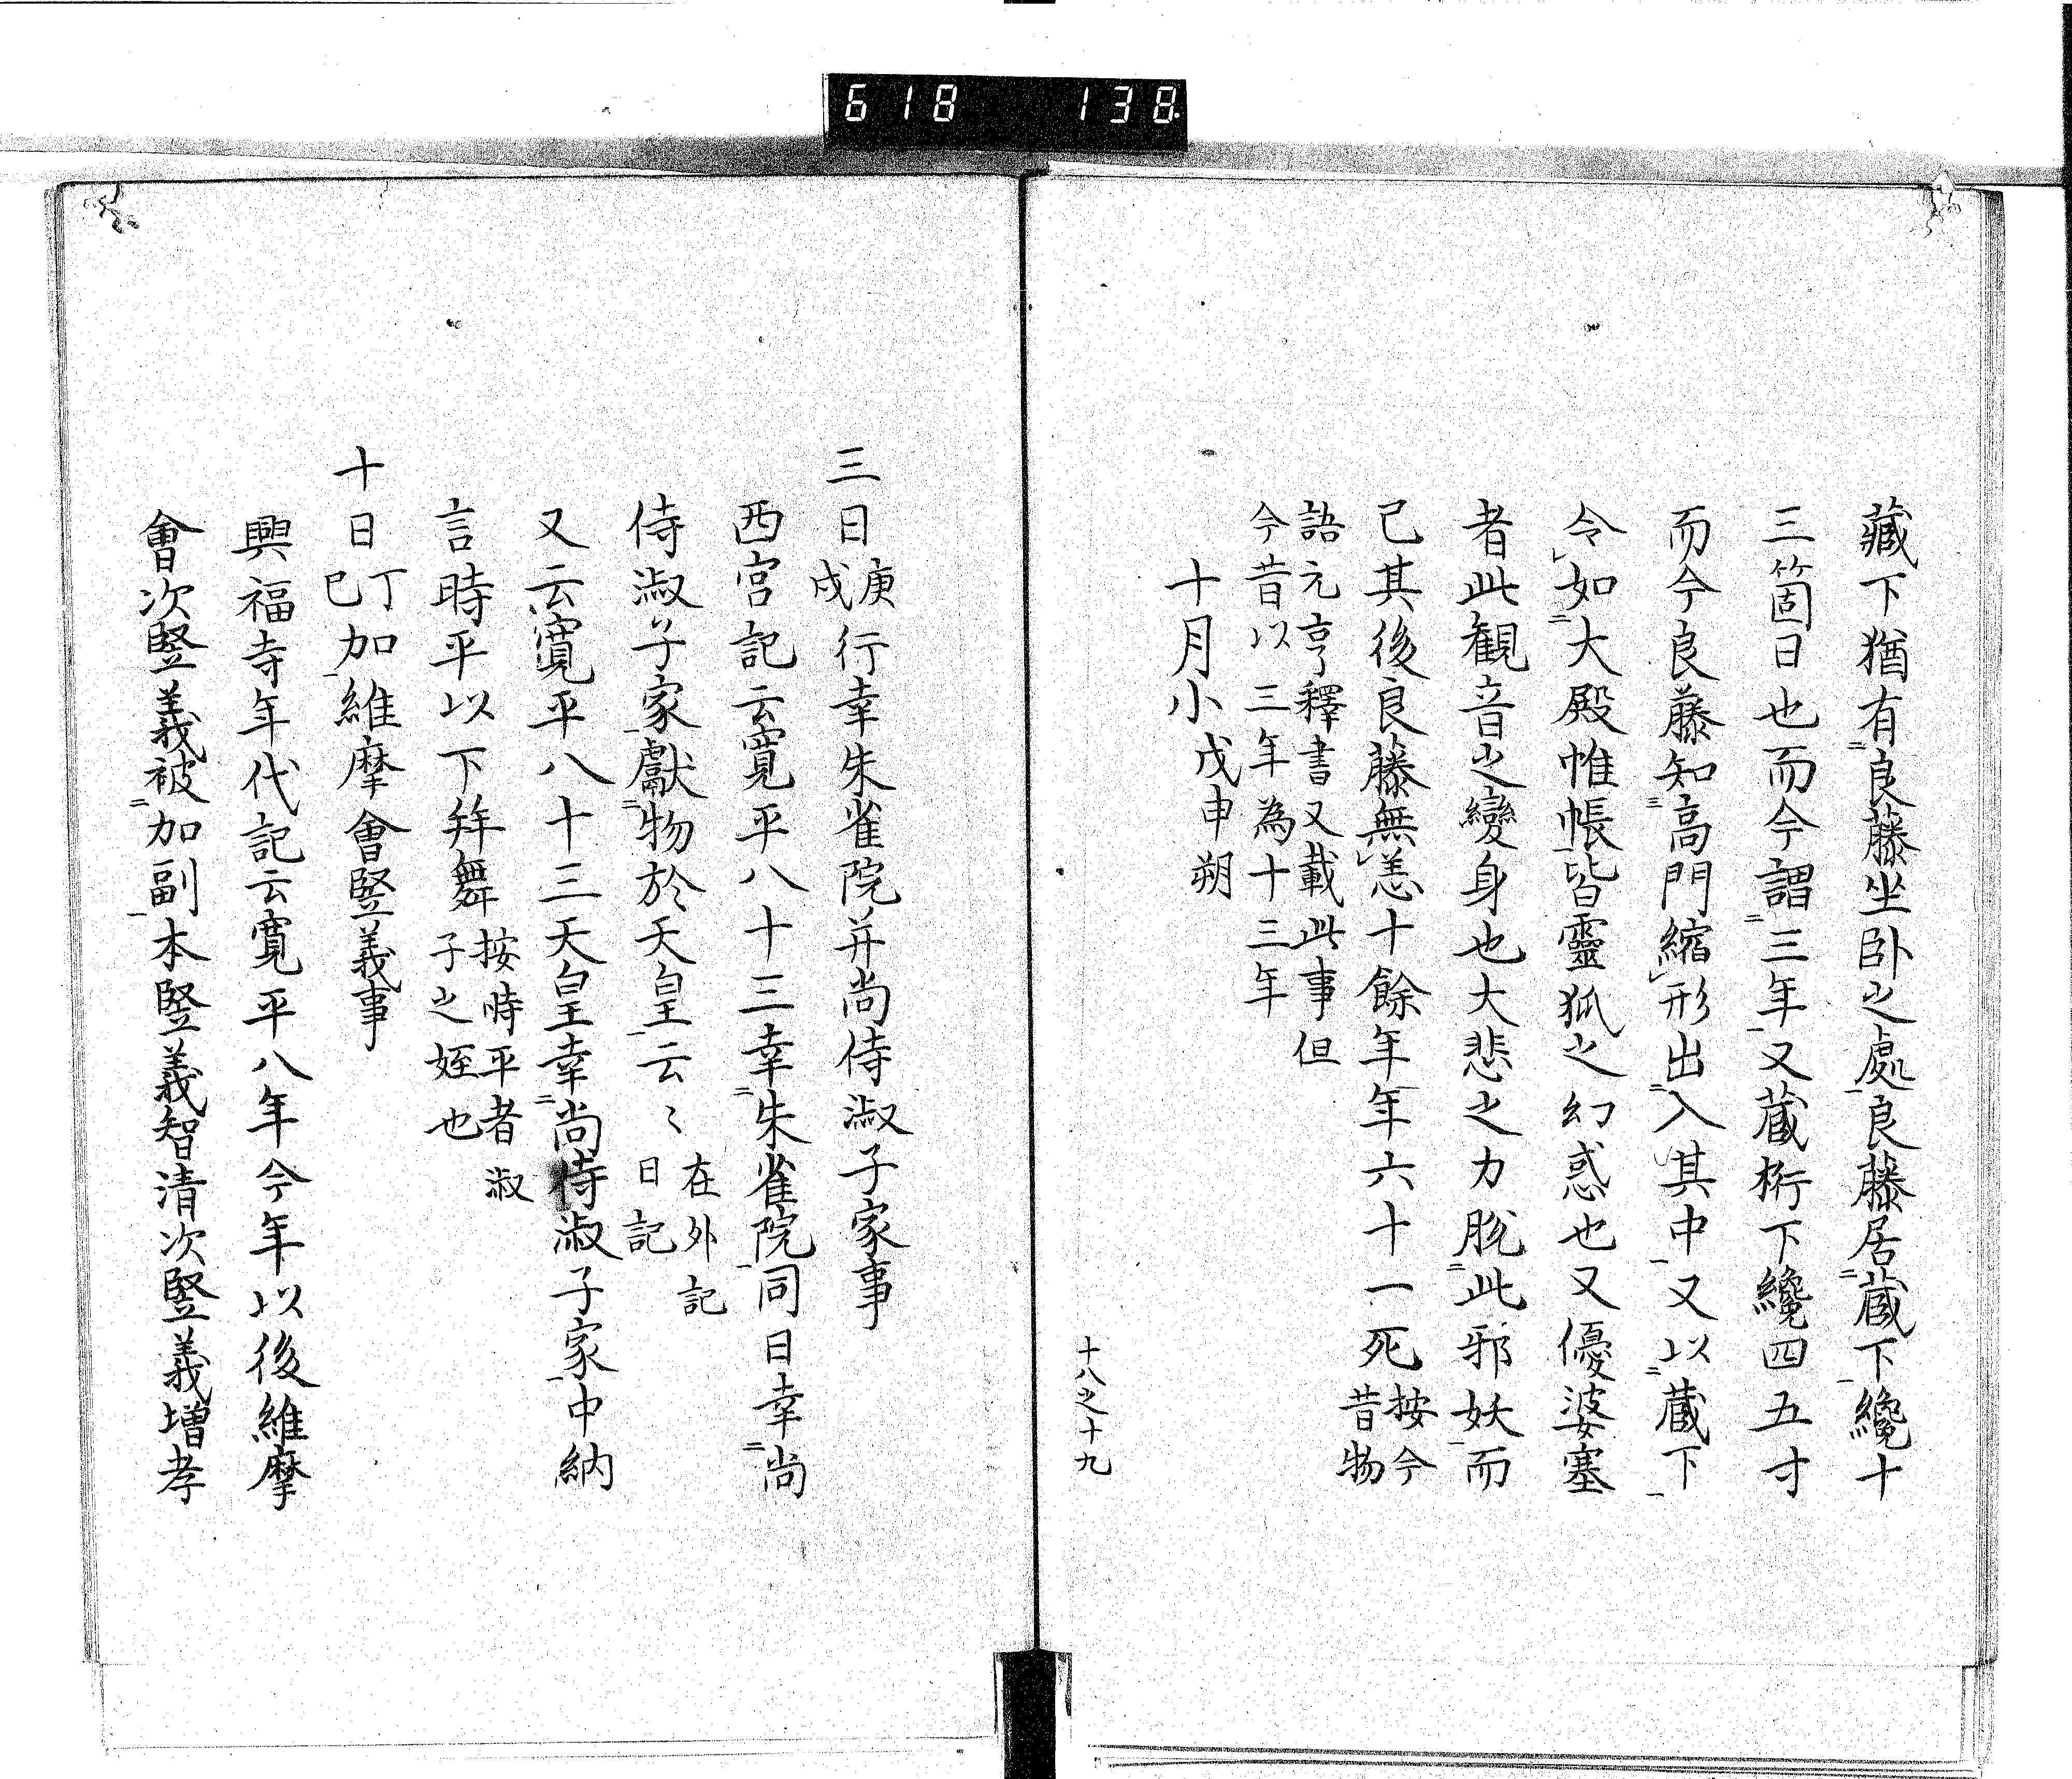 618 138
藏下猶有良藤坐臥之處良藤居蔵下纔十
三箇日也而今謂三年又蔵桁下纔四五寸
而今良藤知高門縮形出入其中又以蔵下
令如大殿帷帳皆靈狐之幻惑也又優婆塞
者此観音之變身也大悲之力脱此邪妖而
已其後良藤無恙十餘年年六十一死按今
昔物
語元亨釋書又載此事但
今昔以三年為十三年
十月小戊申朔
十八之十九
三日庚
戌行幸朱雀院并尚侍淑子家事
西宮記云寛平八十三幸朱雀院同日幸尚
侍淑子家獻物於天皇云〻在外記
日記
又云寛平八十三天皇幸尚侍淑子家中納
言時平以下拜舞按時平者淑
子之姪也
十日丁
巳加維摩會竪義事
興福寺年代記云寛平八年今年以後維摩
會次竪義被加副本竪義智清次竪義増孝